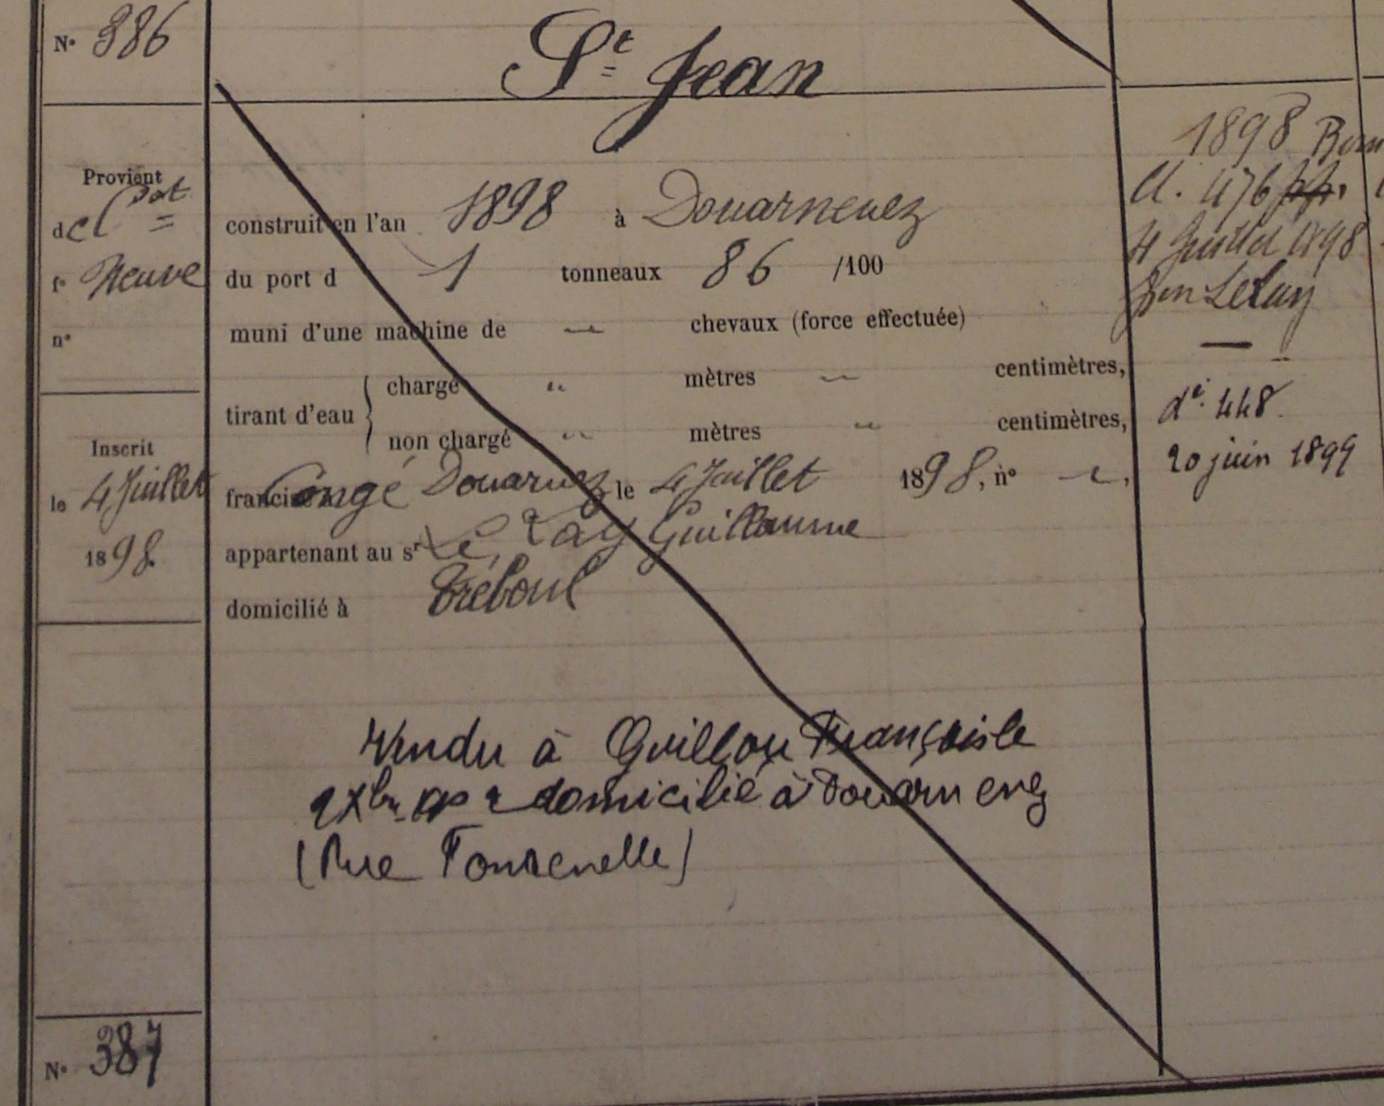 N° 386
St Jean
Provient
d
fe Neuve
n°
Inscrit
le 4 Juillet
1898.
construit en l'an 1898 à Douarnenez
du port d 1 tonneaux 86 /100
muni d'une machine de " chevaux (force effectuée)
tirant d'eau
chargé " mètres " centimètres,
non chargé " mètres " centimètres,
Congé Douarnez le 4 Juillet 1898, n° ",
appartenant au sr Le Lay Guillaume
domicilié à Tréboul
Vendu à Guillou François le
domicilié à Douarnenez
(Rue Fontenelle)
1898
476
4 Juillet 1898
Lelay
do. 448.
20 juin 1899
N° 387